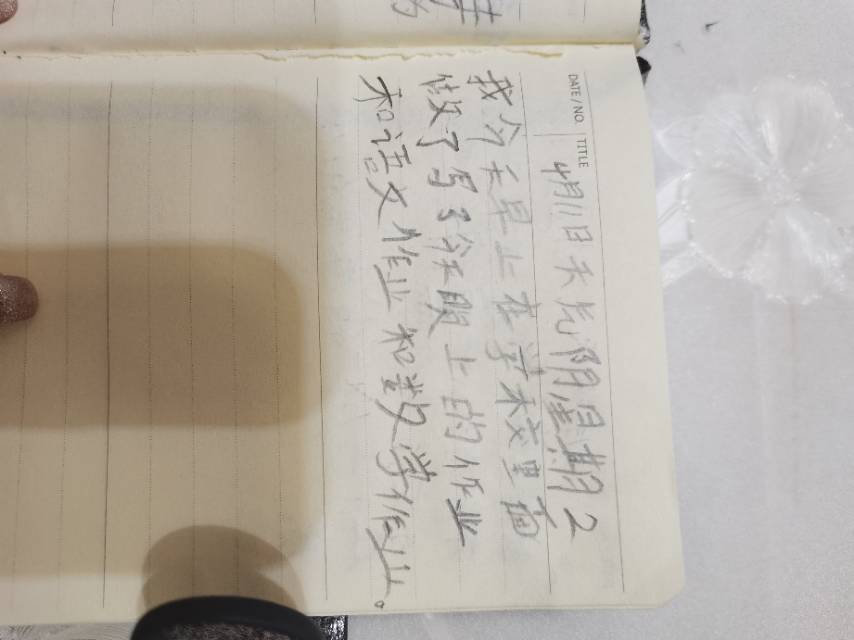 DATE/NO. TITLE
4月11日天气阴星期2
我今天早上在学校里面
做了写了上的作业
和语文作业和数学作业。